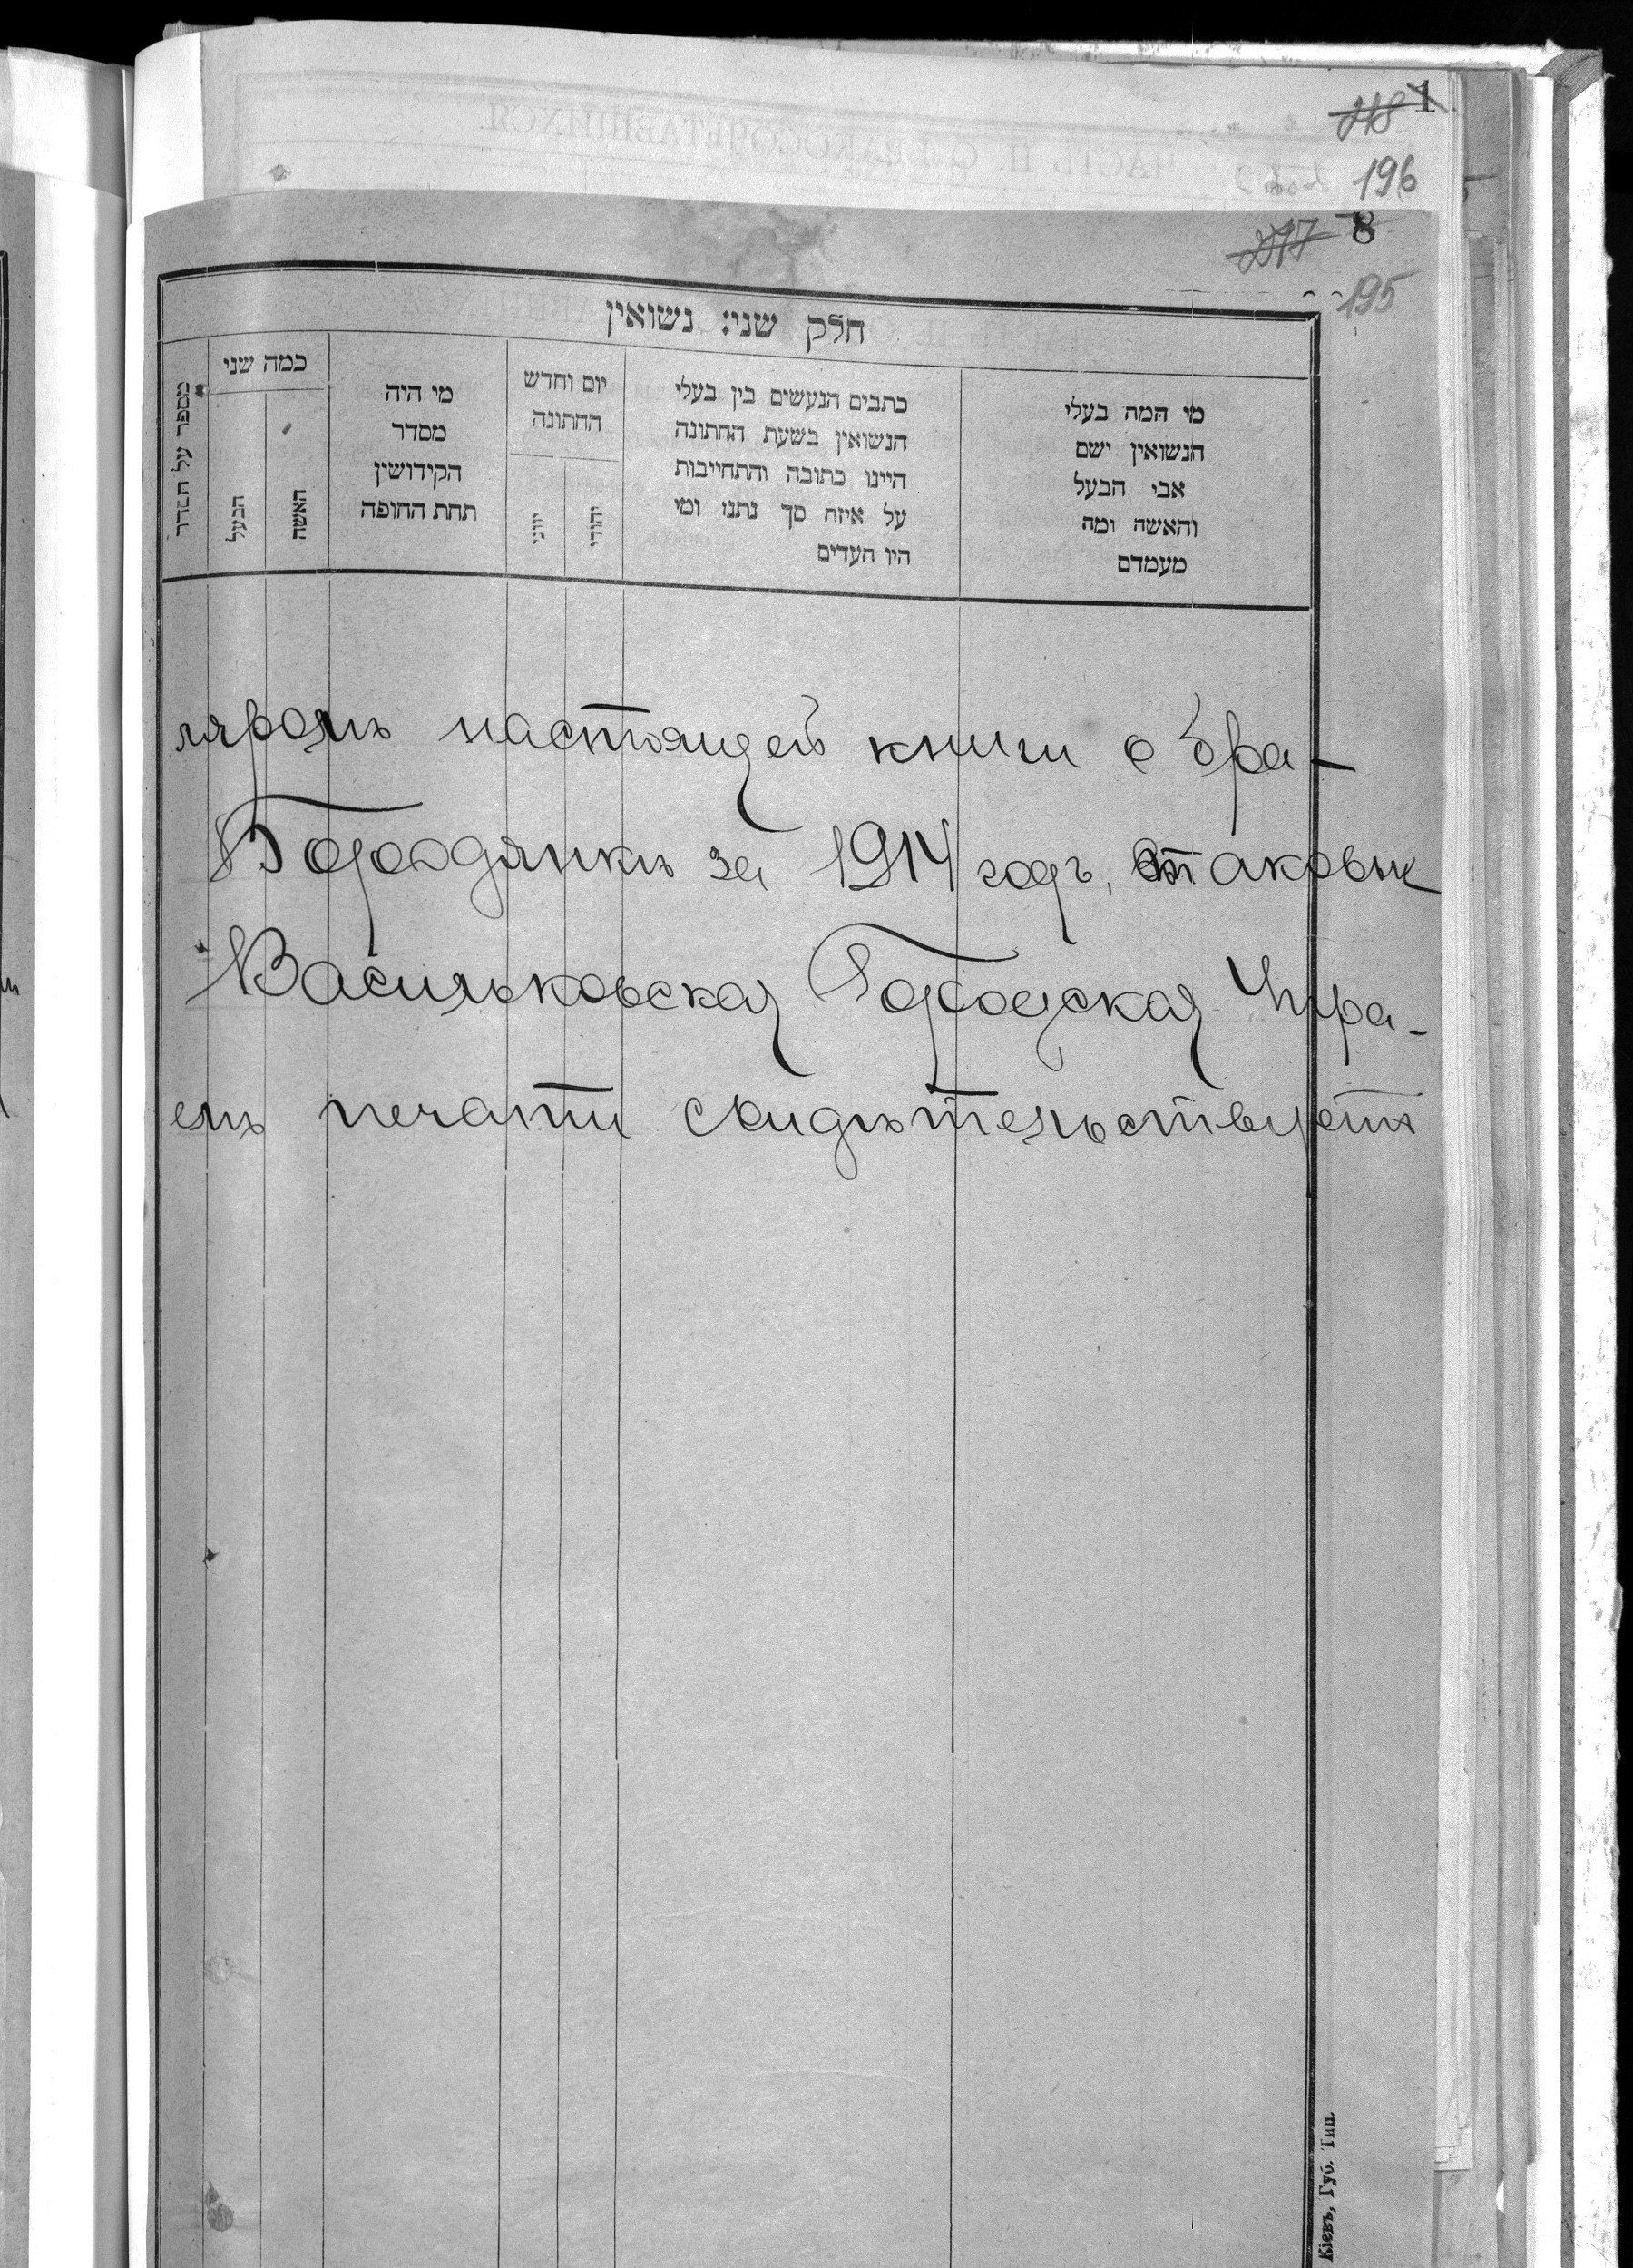 1
218
196
8
217
195
חלק שני: נשואין
מספר על הסדר
כמה שני
הבעל
האשה
מי היה
מסדר
הקידושין
תחת החופה
יום וחדש
החתונה
יוני
יהודי
כתבים הנעשים בין בעלי
הנשואין בשעת החתונה
היינו כתובה והתחייבות
על איזה סך נתנו ומי
היו העדים
מי המה בעלי
הנשואין ישם
אבי הבעל
והאשה ומה
מעמדם
ляромъ настоящей книги о бра-
Бородянкѣ за 1914 годъ, таковыя
Васильковская Городская Упра-
емъ печати свидѣтельствуетъ
Кіевъ, Губ. Тип.